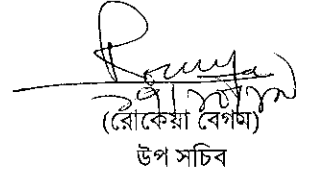 (রোকেয়া বেগম)
উপ সচিব